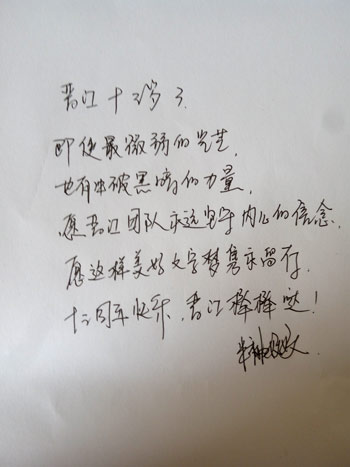 晋江十二岁了
即使最微弱的光芒,
也有冲破黑暗的力量,
愿晋江团队永远坚守内心的信念,
愿这样美好文字梦隽永留存,
十二周年快乐,晋江棒棒哒!